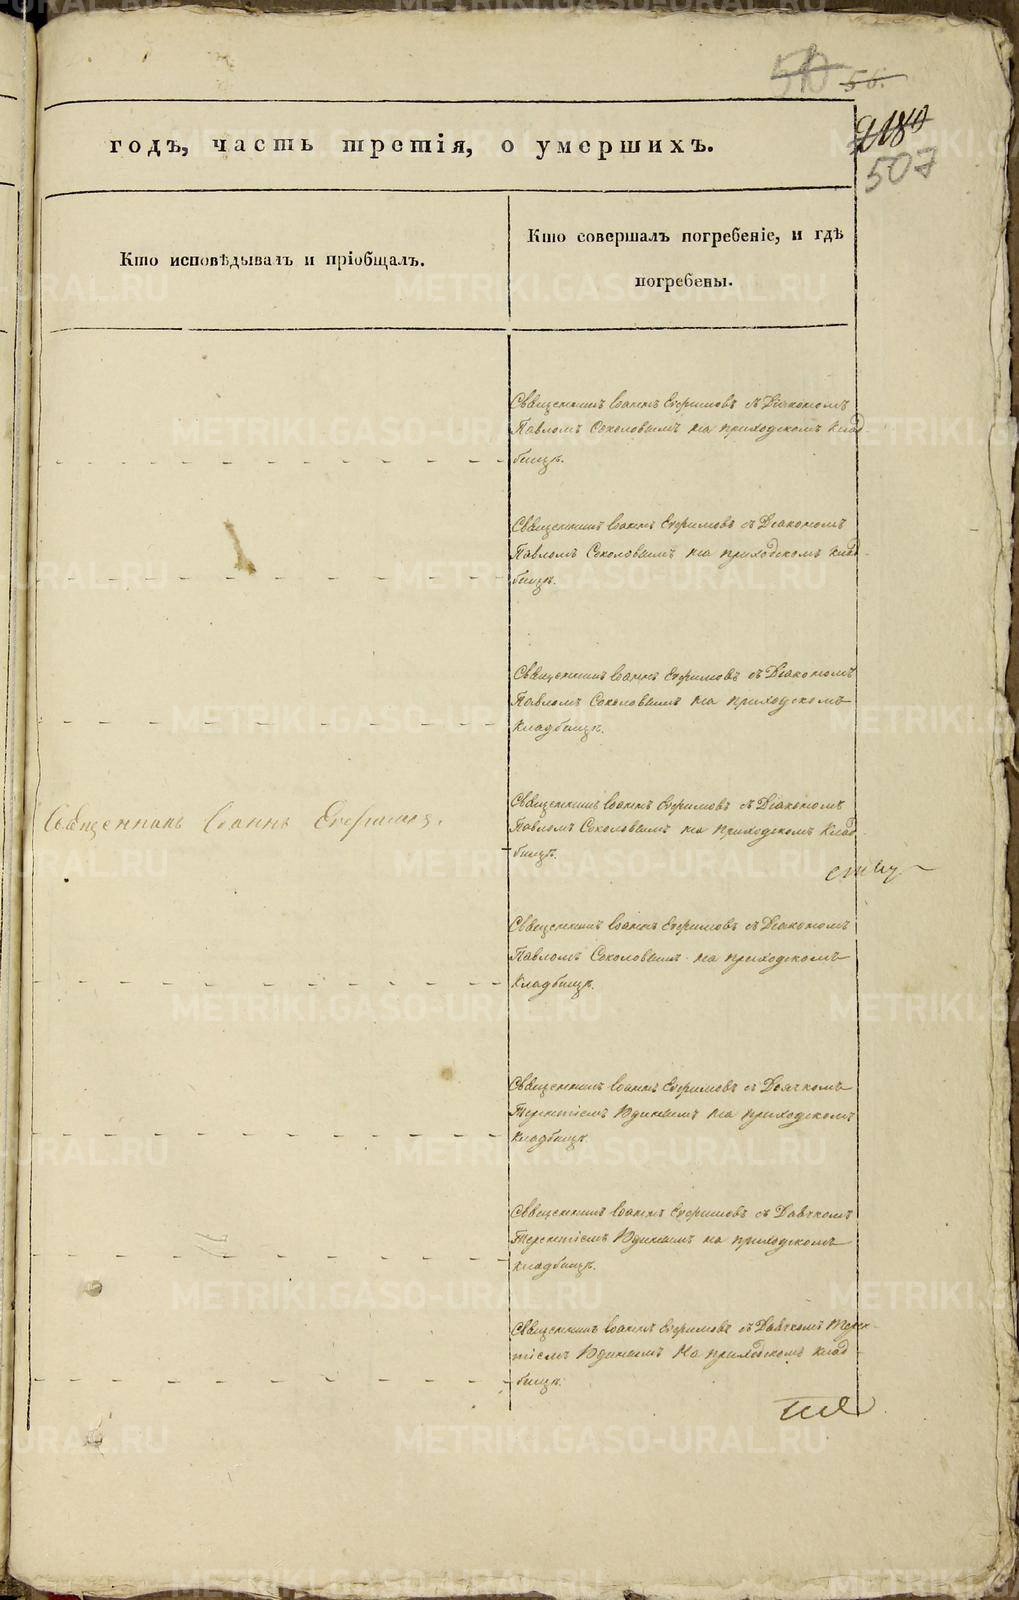 50 56.
2180
507
годъ, часть третія, о умершихъ.
Кто исповѣдывалъ и пріобщалъ.
Кто совершалъ погребеніе, и гдѣ
погребены.
Священникъ Іоаннъ Ефимовъ съ Діакономъ
Павломъ Соколовымъ на приходскомъ клад-
бищѣ.
Священникъ Іоаннъ Ефимовъ съ Діакономъ
Павломъ Соколовымъ на приходскомъ клад-
бищѣ.
Священникъ Іоаннъ Ефимовъ съ Діакономъ
Павломъ Соколовымъ на приходскомъ
кладбищѣ.
Священникъ Іоаннъ Ефимовъ.
Священникъ Іоаннъ Ефимовъ съ Діакономъ
Павломъ Соколовымъ на приходскомъ клад-
бищѣ.
Священникъ Іоаннъ Ефимовъ съ Діакономъ
Павломъ Соколовымъ на приходскомъ
кладбищѣ.
Священникъ Іоаннъ Ефимовъ съ Дьячкомъ
Терентіемъ Юдинымъ на приходскомъ
кладбищѣ
Священникъ Іоаннъ Ефимовъ съ Дьячкомъ
Терентіемъ Юдинымъ на приходскомъ
кладбищѣ.
Священникъ Іоаннъ Ефимовъ съ Дьячкомъ Терен-
тіемъ Юдинымъ на приходскомъ клад-
бищѣ.
METRIKI.GASO-URAL.RU